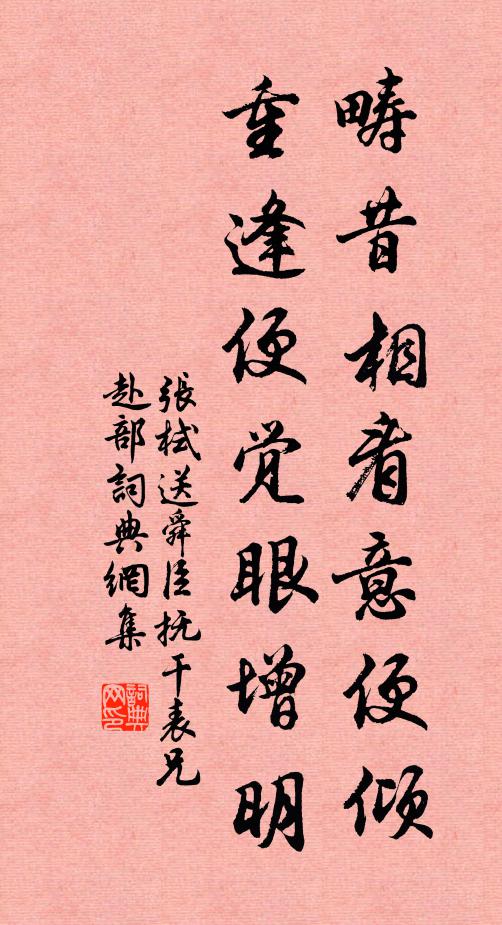 畴昔相看意便傾
重逢便覚眼增明
張栻送舜臣抚干表兄
赴部詞典網集
詞典
网印